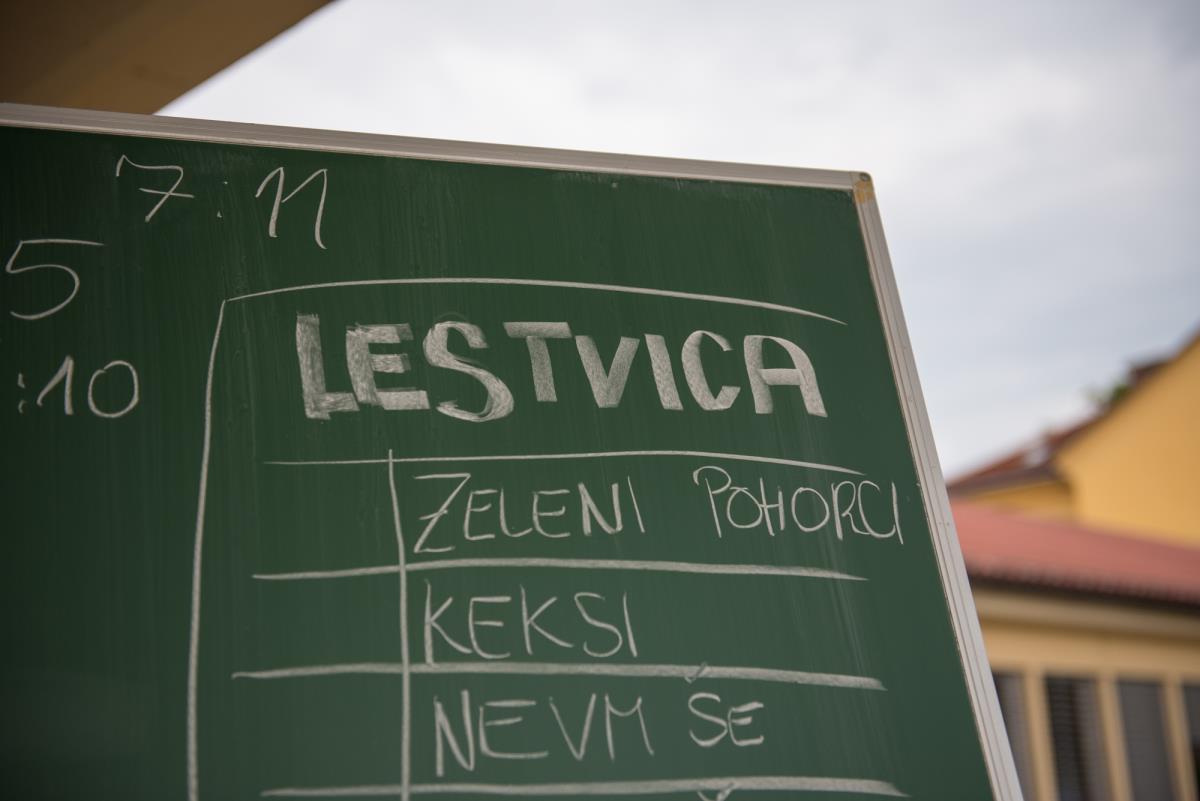 7:11
5
:10
LESTVICA
ZELENI POHORCI
KEKSI
NEVM ŠE